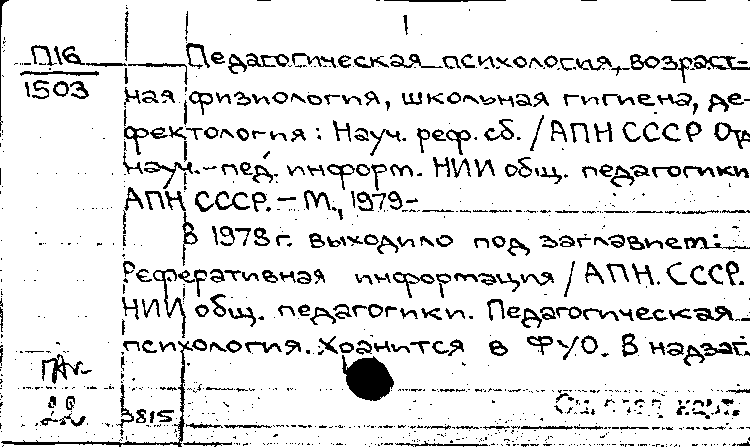 1
П16
1503
Педагогическая психология, возраст-
ная физиология, школьная гигиена, де-
фектология: Науч. реф. сб. / АПН СССР Отд
науч.-пед. информ. НИИ общ. педагогики
АПН СССР. – М., 1979-
В 1978 г. выходило под заглавием:
Реферативная информация / АПН. СССР.
НИИ общ. педагогики. Педагогическая
психология. Хранится в ФУО. В надзаг.
3815
См. след. карт.